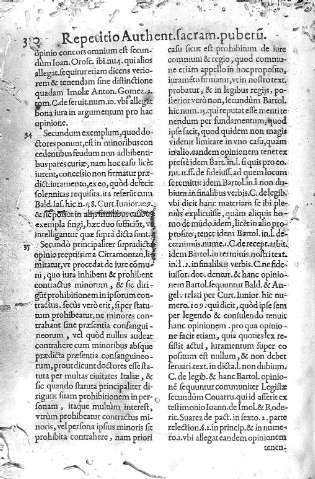 Repetitio Authent. sacram. puberū.
opinio concors omnium est secun-
dùm Ioan. Orosc. ibi nu 4. qui alios
allegat, sequitur etiam dicens verio-
rem & tenendam sine distinctione
quadam Imolæ Anton. Gomez. 2.
tom. C. de ferut. num. 10. vbi allegat
bona iura in argumentum pro hac
opinione.
34 Secundum exemplum, quod do-
ctores ponunt, est in minoribus con
cedentibus feudum non adhibenti-
bus pares curiæ, nam hoc casu licèt
iurent, concesio non firmatur præ-
dicto iuramento, ex eo, quòd deficit
solennitas requisita
Bald. Ias. hic n. 58. Curt. Iunior.
& sic posset in
exempla fingi, hæc duo sufficiút, vt
intelligantur quæ supra dicta sunt.
35 Secundò principaliter supradicta
opinio recepta
mitatur, vt procedat de iure cõmu
ni, quo iura inhibent & prohibent
contractus minorum, & sic diri-
gút prohibitionem in ipsorum con-
tractus. secùs verò erit, super statu-
tum prohibeatur, ne minores con-
trahant sine præsentia consangui-
neorum, vel quòd nullus audeat
contrahere cum minoribus absque
prædicta præsentia consanguineo-
rum, prout dicunt doctores esse sta-
tuta per multas ciuitates Italiæ, &
sic quando statuta principaliter di-
rigunt suam prohibitionem in per-
sonam, itaque multùm interest,
vtrùm prohibeatur contractus mi-
noris, vel persona ipsius minoris sit
prohibita contrahere, nam priori
casu sicut est prohibitum de iure
communi & regio, quod commu-
ne etiam appello in hoc proposito,
iuramēto firmatur, vt in nostro text.
probatur, & in legibus regijs, po-
steriori verò non, secundùm Bartol.
hic num. 15. qui reputat esse menti te-
nendum per fundamentum, quod
ipse facit, quòd quidem non magis
videtur limitare in vno casu, quam
in alio. eandem opinionem tenet ex
presè idem Bart. in l. si quis pro eo.
nu. ff. de fideiuss. ad quem locum
se remittit idem Bartol. in l. non du-
bium in finalibus verbis. C. de legib.
vbi dicit hanc materiam se ibi ple-
niùs explicuisse, quàm aliquis ho-
mo de mundo idem, licèt in alio pro-
posito, tenet idem Bartol. in l. de-
C. de recept. arbit.
idem Bartol. in testibus nostri text.
in l. 2. in finalibus verbis. C. ne fide-
iussor. dot. dentur. & hanc opinio-
nem Bartol. sequuntur Bald. & An-
gel. relati per Curt. Iunior. hic nu-
mero. 109. qui dicit, quòd ipse sem
per legendo & consulendo tenuit
hanc opinionem. pro qua opinio-
ne facit etiam, quia quoties lex re-
sistit actui, iuramentum super eo
positum est nullum, & non debet
seruari. text. in dict. l. non dubium.
C. de legib. & hanc Bartol. opinio-
nē sequuntur communiter Legistæ
secundùm Couarru. qui id asserit ex
testimonio Ioann. de Imol. & Rode-
ric. Suarez de pact. in sexto. 2. parte
relection. §. 2. in princip. & in nume-
ro. 2. vbi allegat eandem opinionem
tenen-